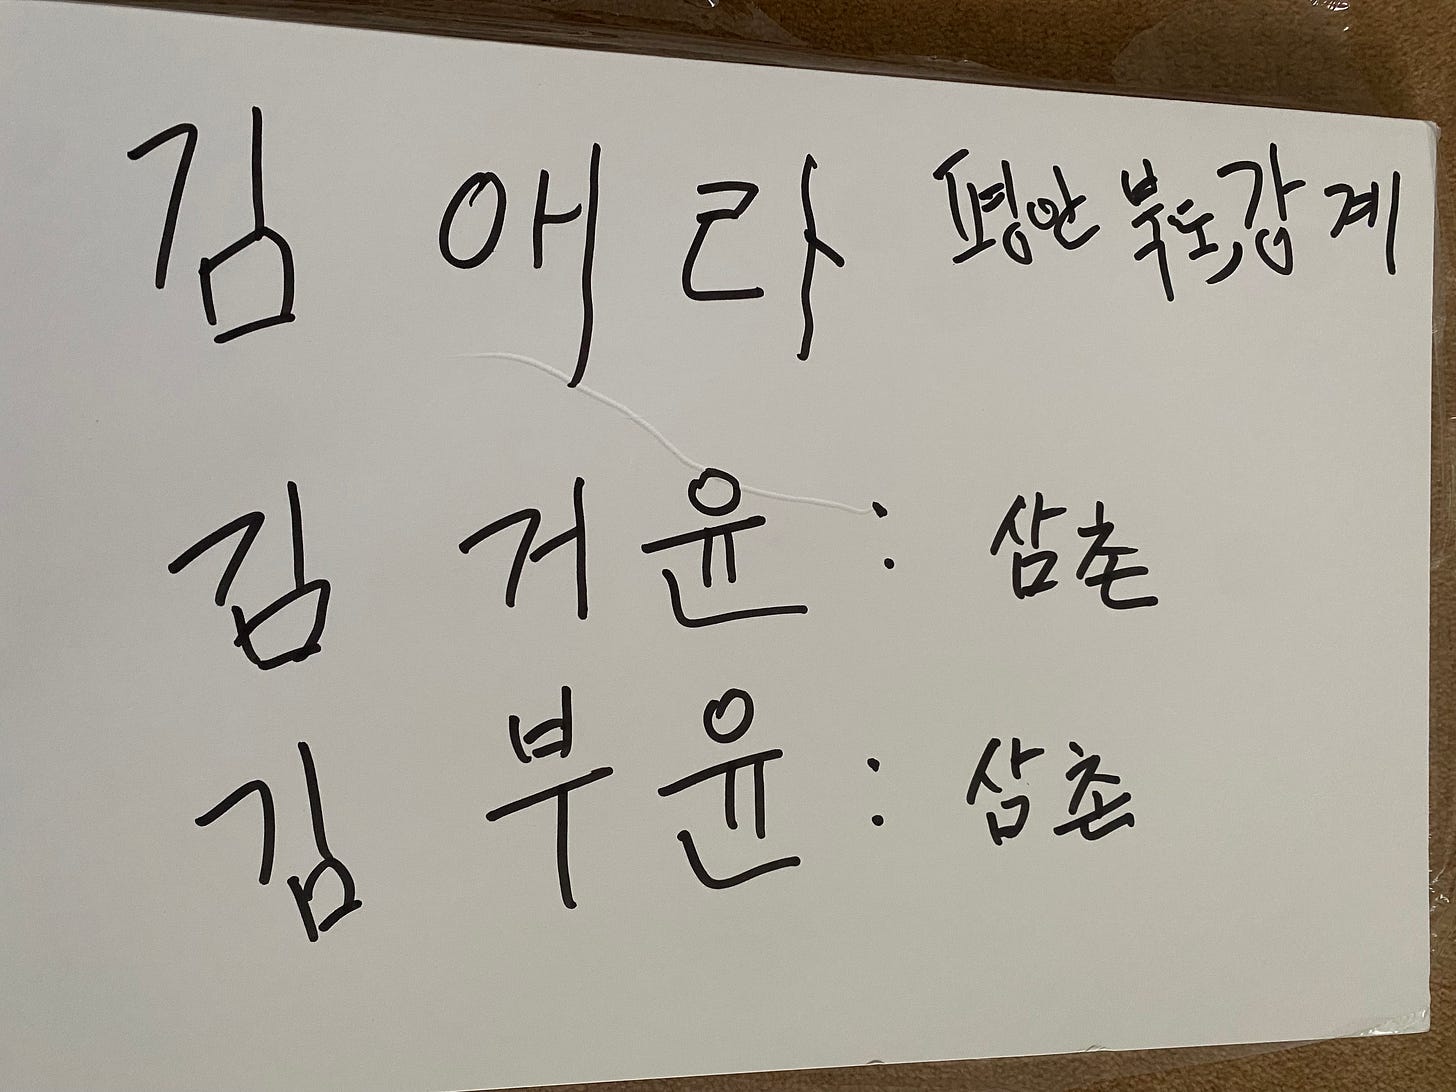 김 애라 평안북도, 강계
김 거윤 : 삼촌
김 부윤 : 삼촌